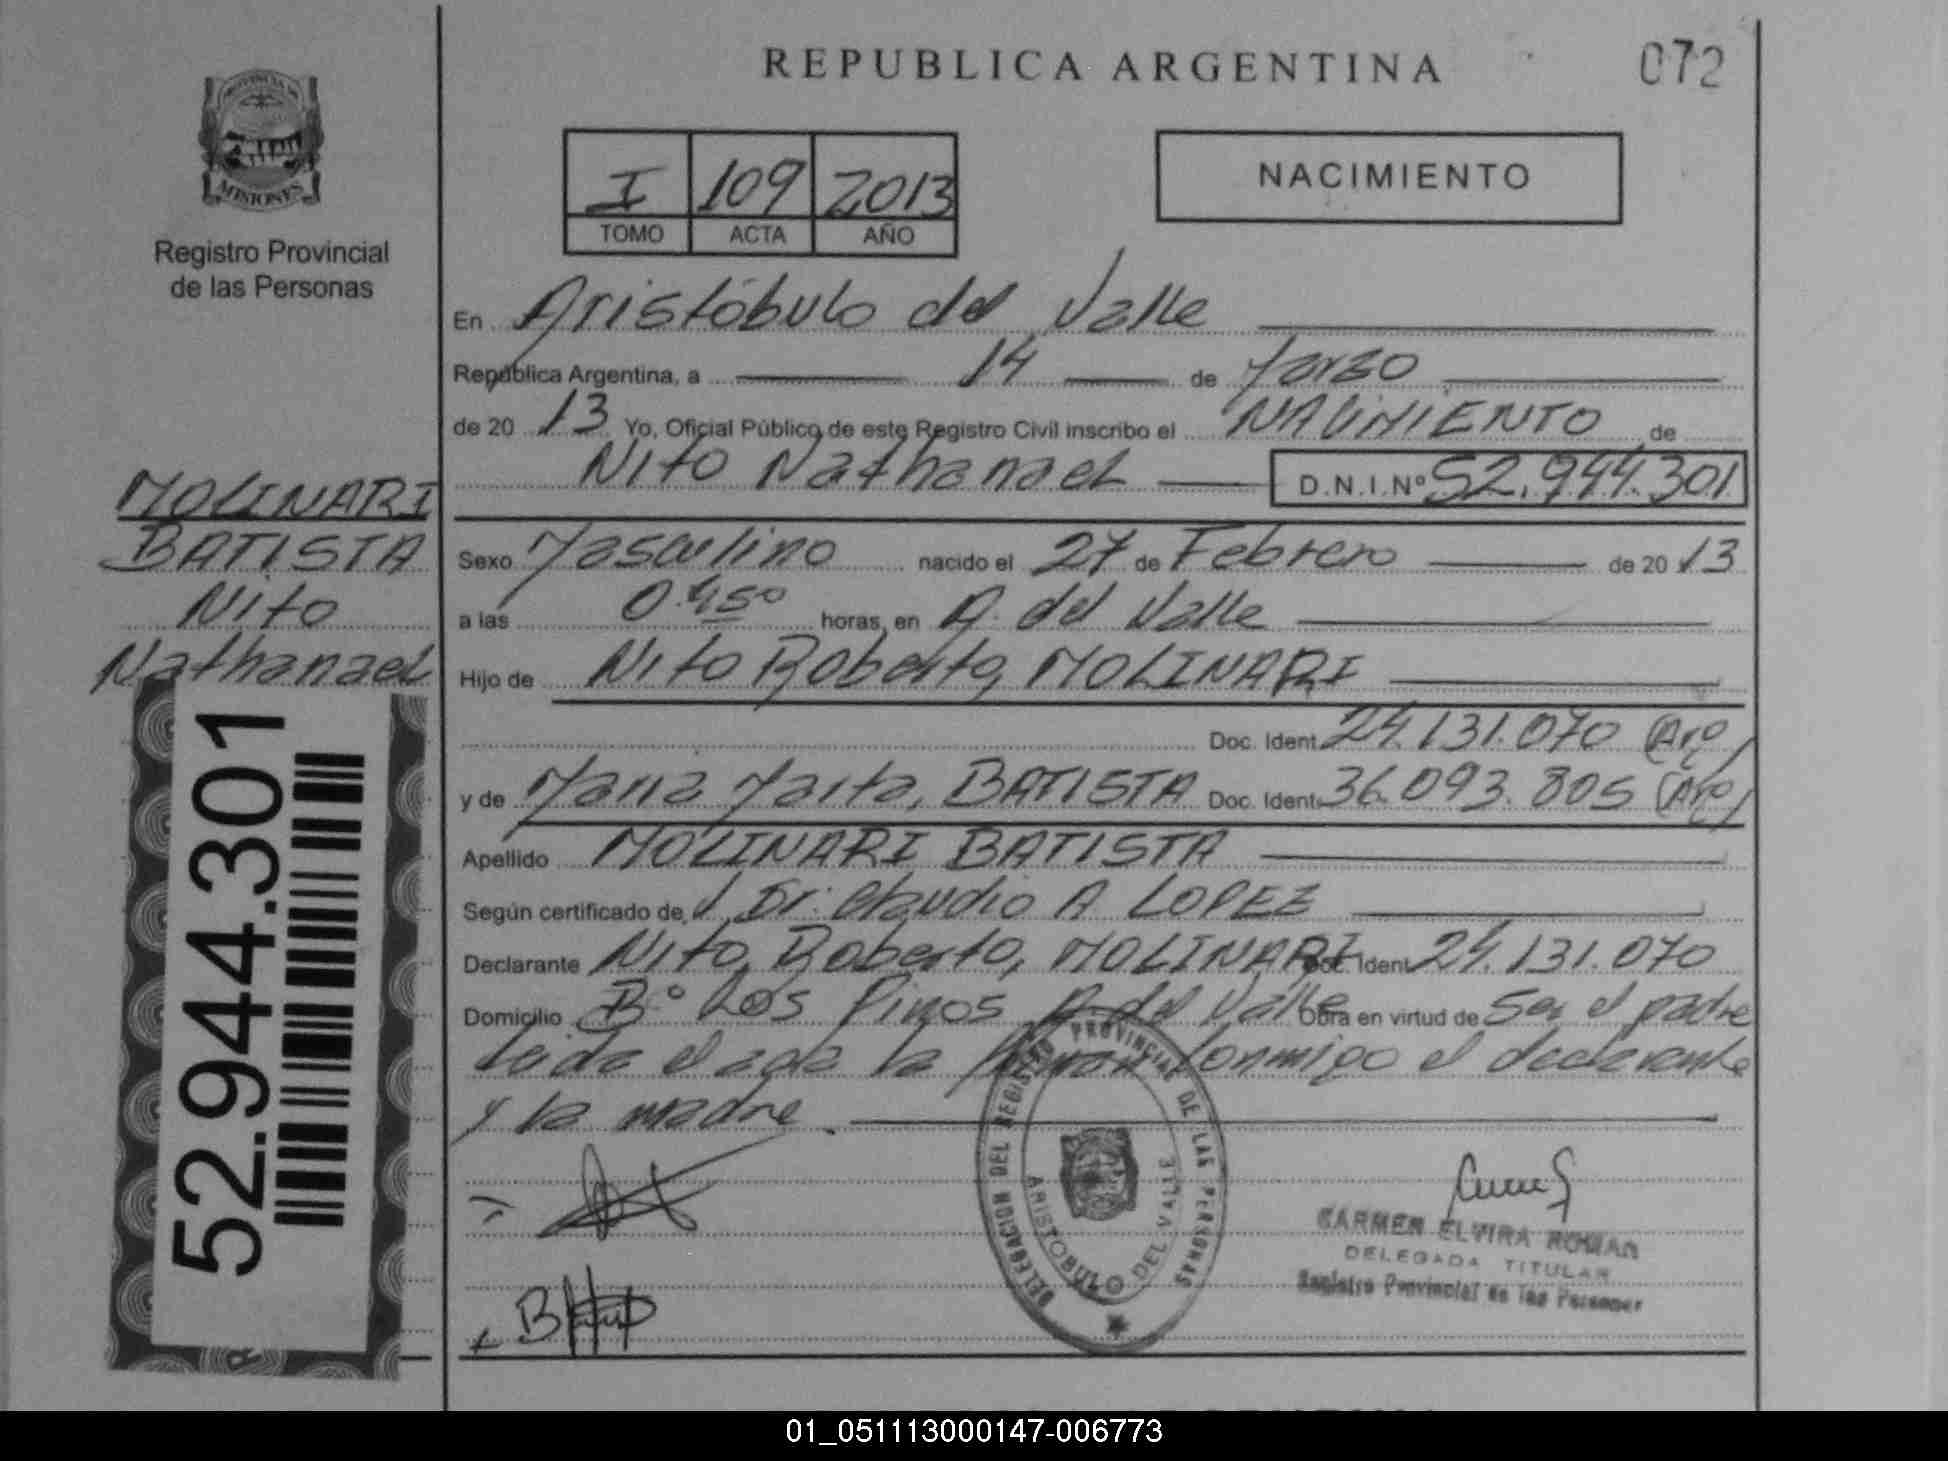 REPUBLICA ARGENTINA
072
PROVINCIA DE
MISIONES
Registro Provincial
de las Personas
I 109 2013
TOMO ACTA AÑO
NACIMIENTO
En Aristóbulo del Valle
República Argentina, a 14 de Marzo
de 20 13 Yo, Oficial Público de este Registro Civil inscribo el NACIMIENTO de
Nito Nathanael D.N.I.Nº 52.944.301
MOLINARI
BATISTA
Nito
Nathanael
52.944.301
Sexo Masculino nacido el 27 de Febrero de 20 13
a las 0.45º horas, en A. del Valle
Hijo de Nito Roberto, MOLINARI
Doc. Ident. 24.131.070 (Arg)
y de Maria Marta, BATISTA Doc. Ident. 36.093.805 (Arg)
Apellido MOLINARI BATISTA
Según certificado de Dr. Claudio A LOPEZ
Declarante Nito, Roberto, MOLINARI Doc. Ident. 24.131.070
Domicilio Bº Los Pinos A. del Valle Obra en virtud de Ser el padre
Leida el acta la firman conmigo el declarante
y la madre.
DELEGACION DEL REGISTRO PROVINCIAL DE LAS PERSONAS
ARISTOBULO DEL VALLE
CARMEN ELVIRA ROMAN
DELEGADA TITULAR
Registro Provincial de las Personas
01_051113000147-006773